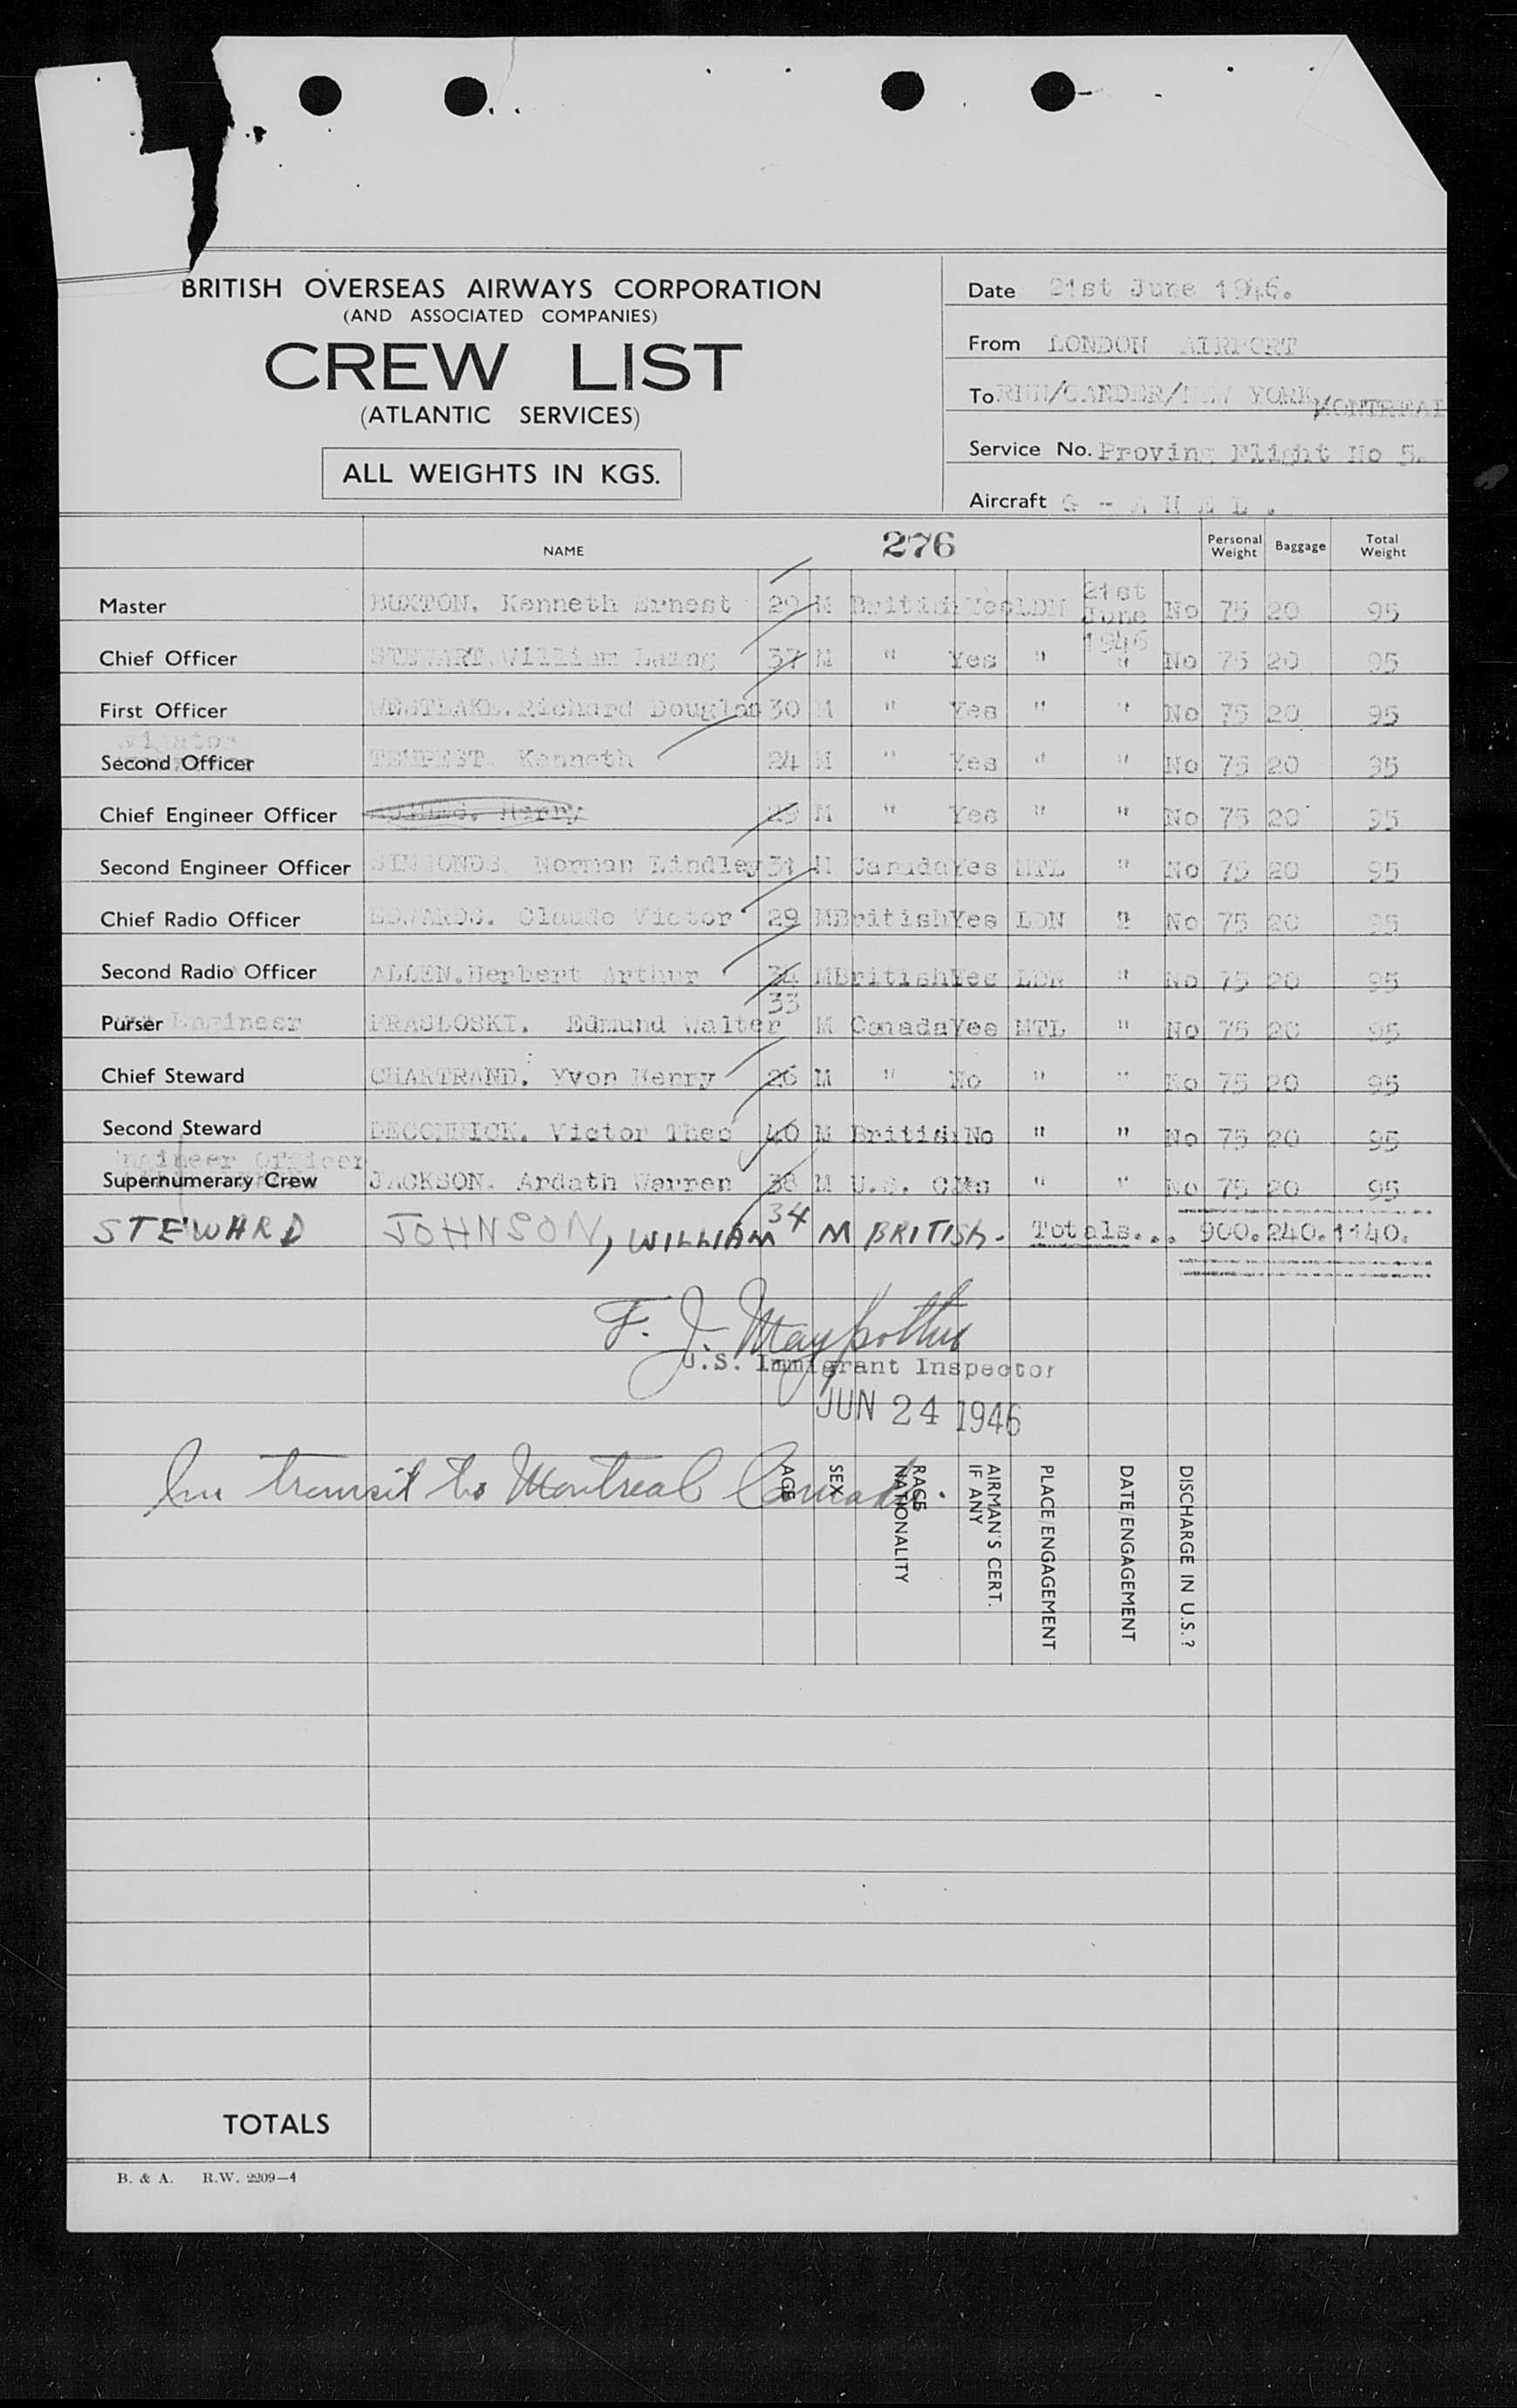 BRITISH OVERSEAS AIRWAYS CORPORATION
(AND ASSOCIATED COMPANIES)
CREW LIST
(ATLANTIC SERVICES)
ALL WEIGHTS IN KGS.
Date 21st June 1946.
From LONDON AIRPORT
To RINN/GANDER/NEW YORK/MONTREAL
Service No. Proving Flight No 5.
Aircraft G - A H E L .
NAME 276 Personal Weight Baggage Total Weight
Master BUXTON. Kenneth Ernest 29 M British Yes LDN 21st June 1946 No 75 20 95
Chief Officer STEWART. William Laing 37 M " Yes " " No 75 20 95
First Officer WESTLAKE. Richard Douglas 30 M " Yes " " No 75 20 95
Second Officer TEMPEST. Kenneth 24 M " Yes " " No 75 20 95
Chief Engineer Officer Harry 29 M " Yes " " No 75 20 95
Second Engineer Officer SIMMONDS. Norman Lindley 31 M Canada Yes MTL " No 75 20 95
Chief Radio Officer EDWARDS. Claude Victor 29 M British Yes LDN " No 75 20 95
Second Radio Officer ALLEN. Herbert Arthur 34 M British Yes LDN " No 75 20 95
Purser Engineer PRASLOSKI. Edmund Walter 33 M Canada Yes MTL " No 75 20 95
Chief Steward CHARTRAND. Yvon Henry 26 M " No " " No 75 20 95
Second Steward Victor Theo 40 M British No " " No 75 20 95
Engineer Officer
Supernumerary Crew JACKSON. Ardath Warren 38 M U.S. " " No 75 20 95
STEWARD JOHNSON, WILLIAM 34 M BRITISH. Totals... 900. 240. 1140.
F. J. Maypother
U.S. Immigrant Inspector
JUN 24 1946
In transit to Montreal Canada.
AGE
SEX
RACE NATIONALITY
AIRMAN'S CERT. IF ANY
PLACE/ENGAGEMENT
DATE/ENGAGEMENT
DISCHARGE IN U.S.?
TOTALS
B. & A. R.W. 2209—4